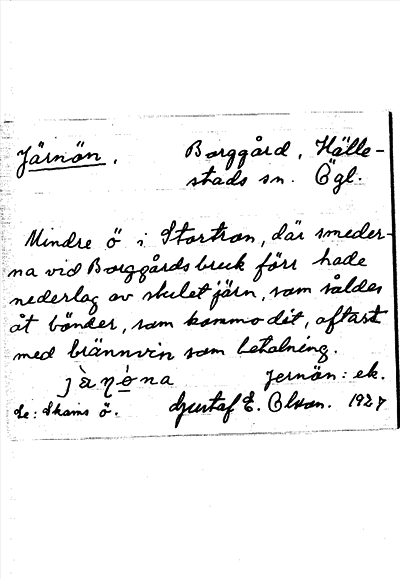 Järnön. Borggård, Hälle-
stads sn. Ögl.
Mindre ö i Stortron, där smeder-
na vid Borggårds bruk förr hade
nederlag av stulet järn, som såldes
åt bönder, som kommo dit, oftast
med brännvin som betalning.
Jernön: ek.
Se: Skams ö. Gustaf E. Olson. 1927